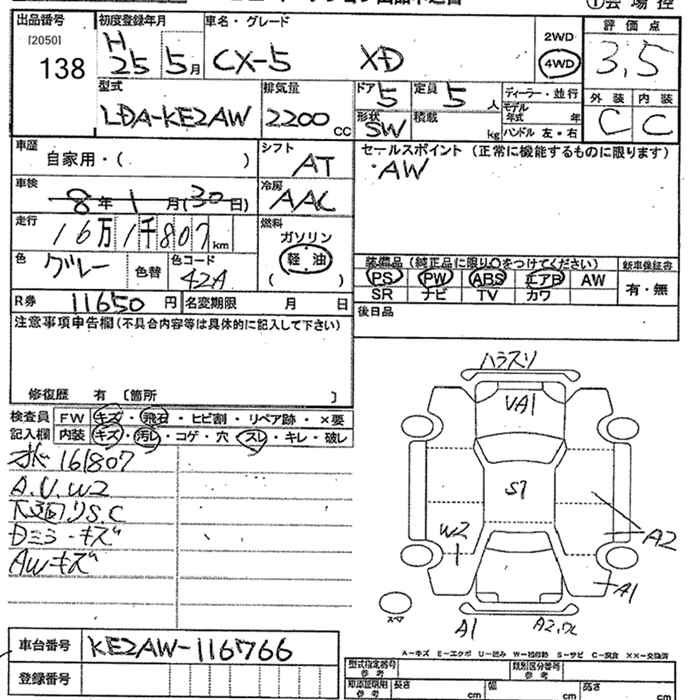 ①会場控
出品番号
[2050]
138
初度登録年月
H
25 5月
車名・グレード
CX-5 XD
2WD
4WD
評価点
3.5
型式
LDA-KE2AW
排気量
2200 CC
ドア
5
定員
5 人
形状
SW
積載
kg
ディーラー・並行
モデル
年式 年
ハンドル 左・右
外装 内装
C C
車歴
自家用・( )
シフト
AT
セールスポイント (正常に機能するものに限ります)
・AW
車検
8年1月(30日)
冷房
AAC
走行
16万1千807km
燃料
ガソリン
軽油
( )
色
グレー
色替
色コード
42A
装備品(純正品に限り○をつけてください)
PS PW ABS エアB AW
SR ナビ TV カワ
新車保証書
有・無
R券 11650円
名変期限 月 日
後日品
注意事項申告欄(不具合内容等は具体的に記入して下さい)
修復歴 有 〔箇所 〕
検査員
記入欄
FW キズ・飛石・ヒビ割・リペア跡・×要
内装 キズ・汚レ・コゲ・穴・スレ・キレ・破レ
161807
A.U.W2
下廻りS.C
Dミラーキズ
AWキズ
VA1
S7
W2
A2
A1
A1
スペア
車台番号
KE2AW-116766
登録番号
A-キズ E-エクボ U-凹み W-補修跡 S-サビ C-腐食 ××-交換済
型式指定番号
参考
類別区分番号
参考
参考
長さ cm
幅 cm
高さ cm